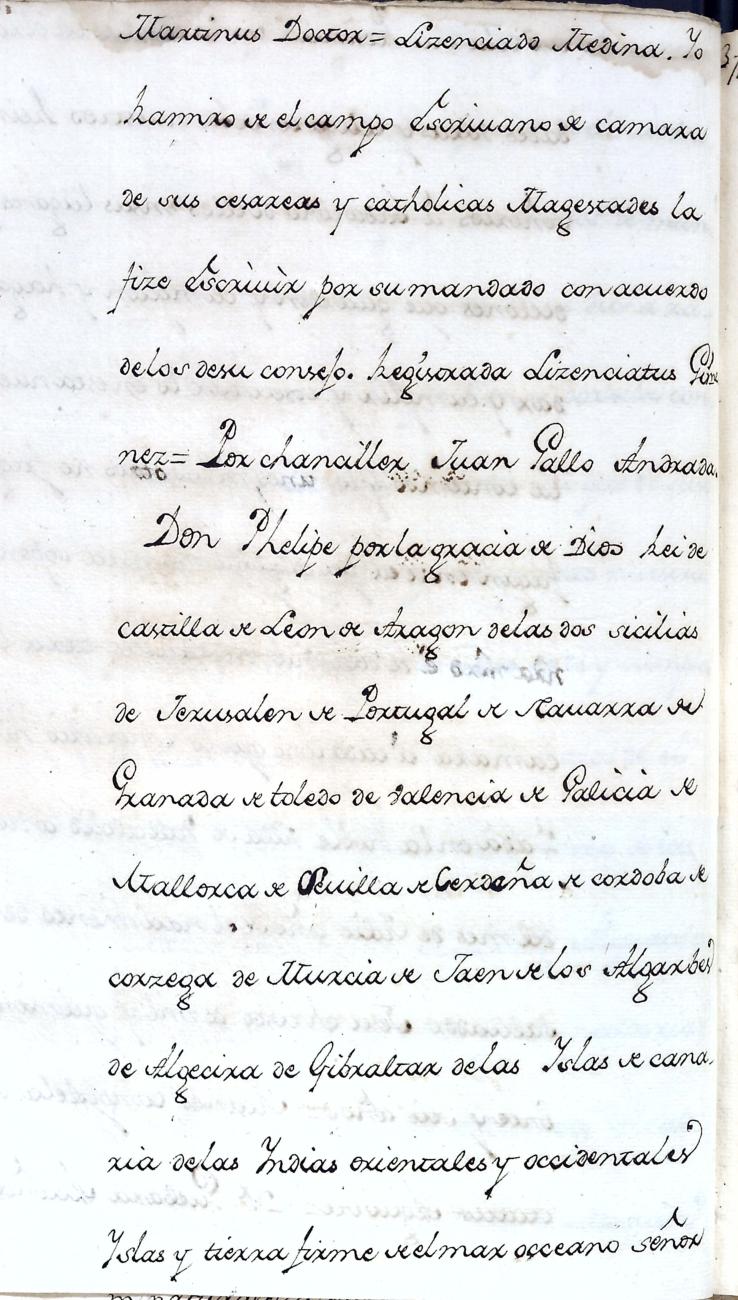 Martinus Doctor = Lizenciado Medina. Yo
Ramiro de el campo Escriuano de camara
de sus cesareas y catholicas Magestades la
fize Escriuir por su mandado con acuerdo
delos desu consejo. Registrada Lizenciatus Gime
nez = Por chanciller Juan Gallo Andrada.
Don Phelipe por la gracia de Dios Rei de
castilla de Leon de Aragon delas dos sicilias
de Jerusalen de Portugal de Nauarra de
Granada de toledo de valencia de Galicia de
Mallorca de Seuilla de Cerdeña de cordoba de
corzega de Murcia de Jaen de los Algarbes
de Algecira de Gibraltar delas Islas de cana
ria delas Indias orientales y occidentales
Yslas y tierra firme de el mar occeano señor